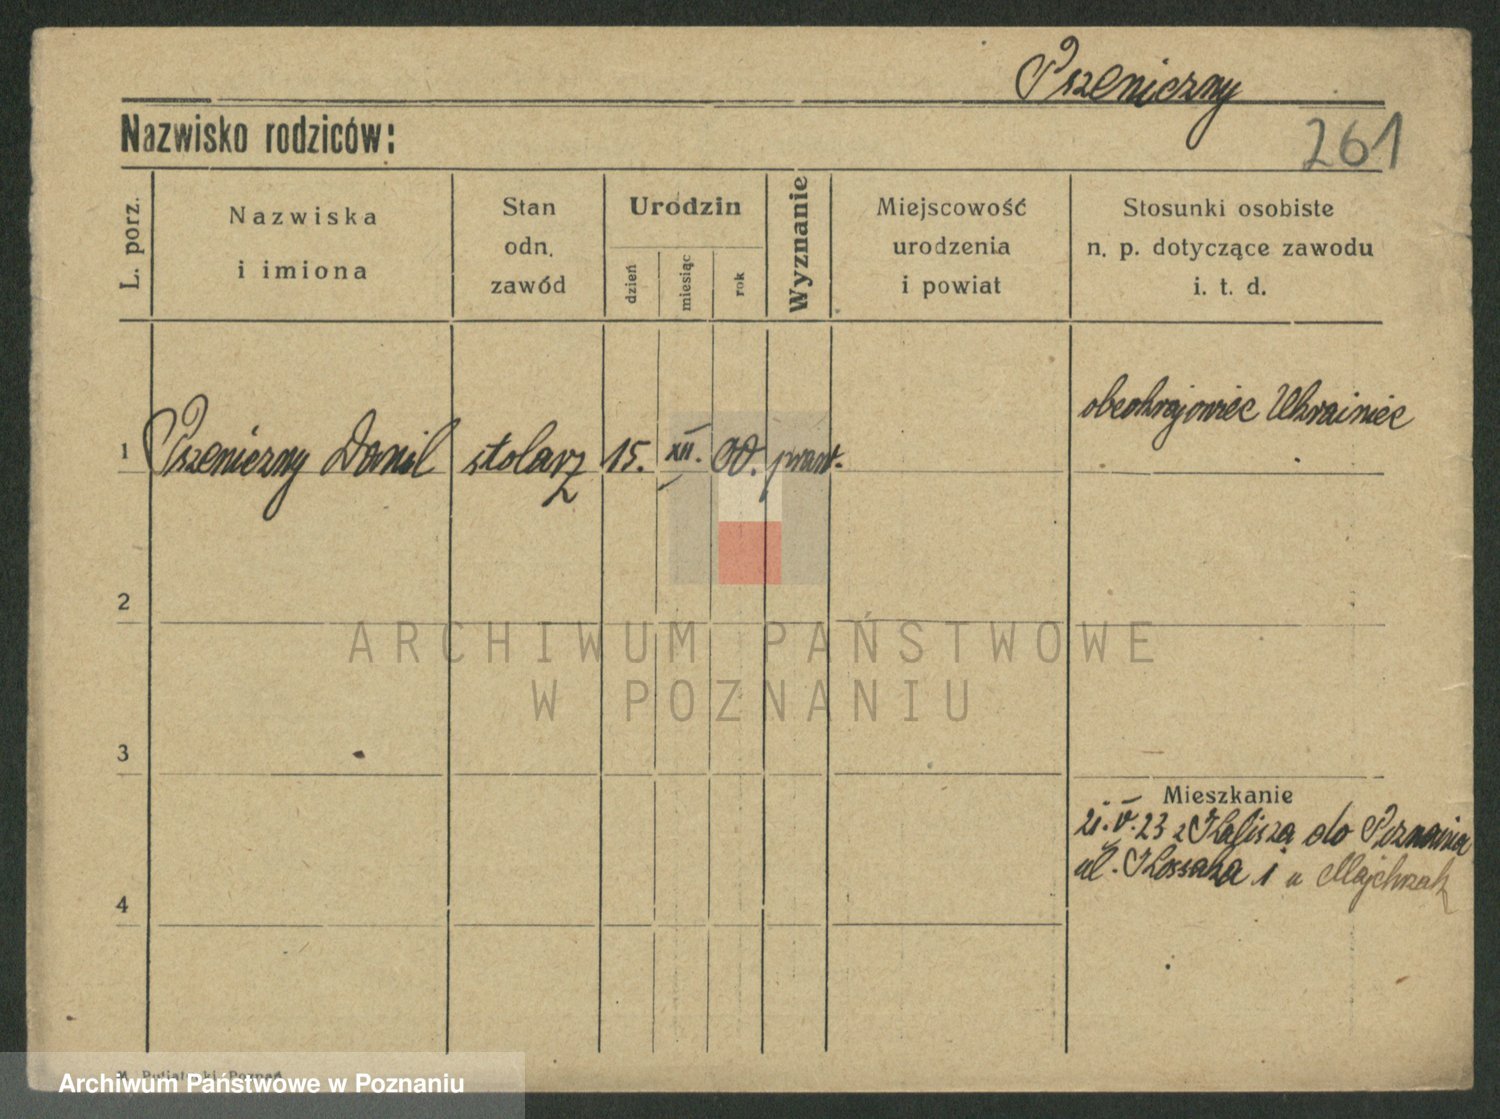 Pszeniczny
Nazwisko rodziców:
261
L. porz.
Nazwiska
i imiona
Stan
odn.
zawód
Urodzin
dzień
miesiąc
rok
Wyznanie
Miejscowość
urodzenia
i powiat
Stosunki osobiste
n. p. dotyczące zawodu
i. t. d.
obcokrajowiec Ukrainiec
1 Pszeniczny Danil stolarz 15. XII. 00. praw.
2
3
Mieszkanie
21. V. 23 z Kalisza do Poznania
ul. Kossaka 1 u Majchrzak
4
ARCHIWUM PAŃSTWOWE
W POZNANIU
Poznań
Archiwum Państwowe w Poznaniu